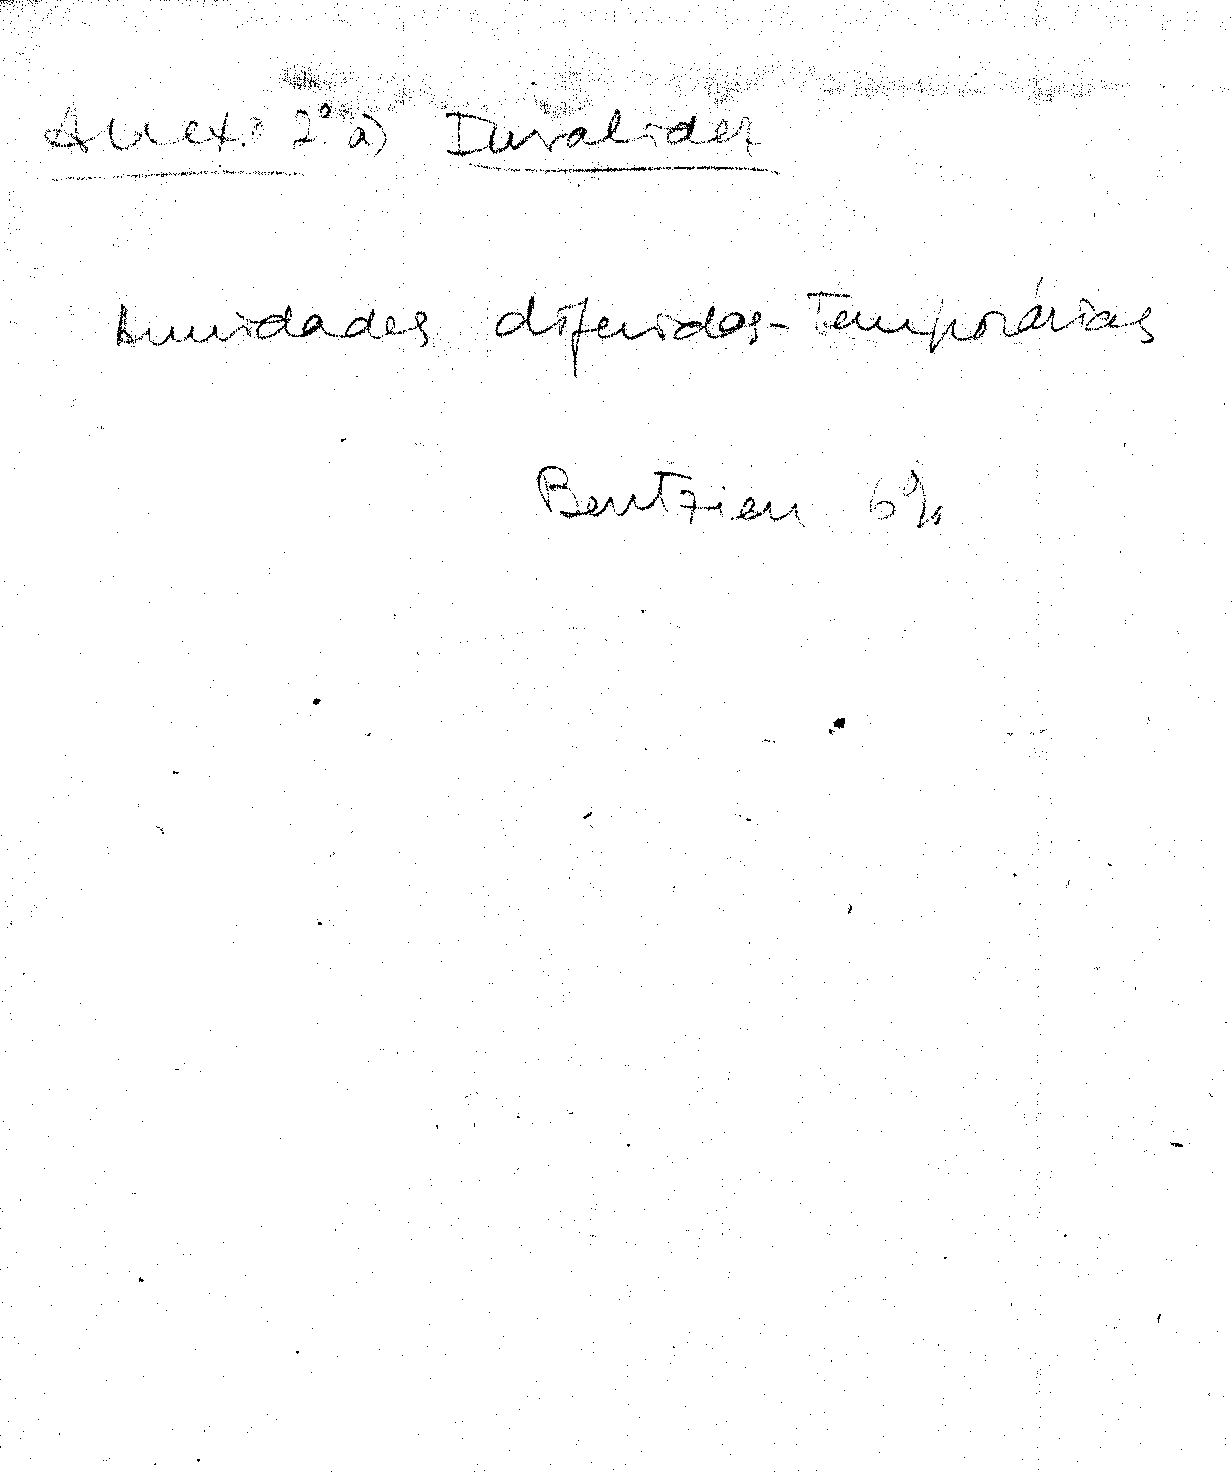 Anexo 2º a) Invalidez
Anuidades diferidas-Temporárias
Bentzien 6%